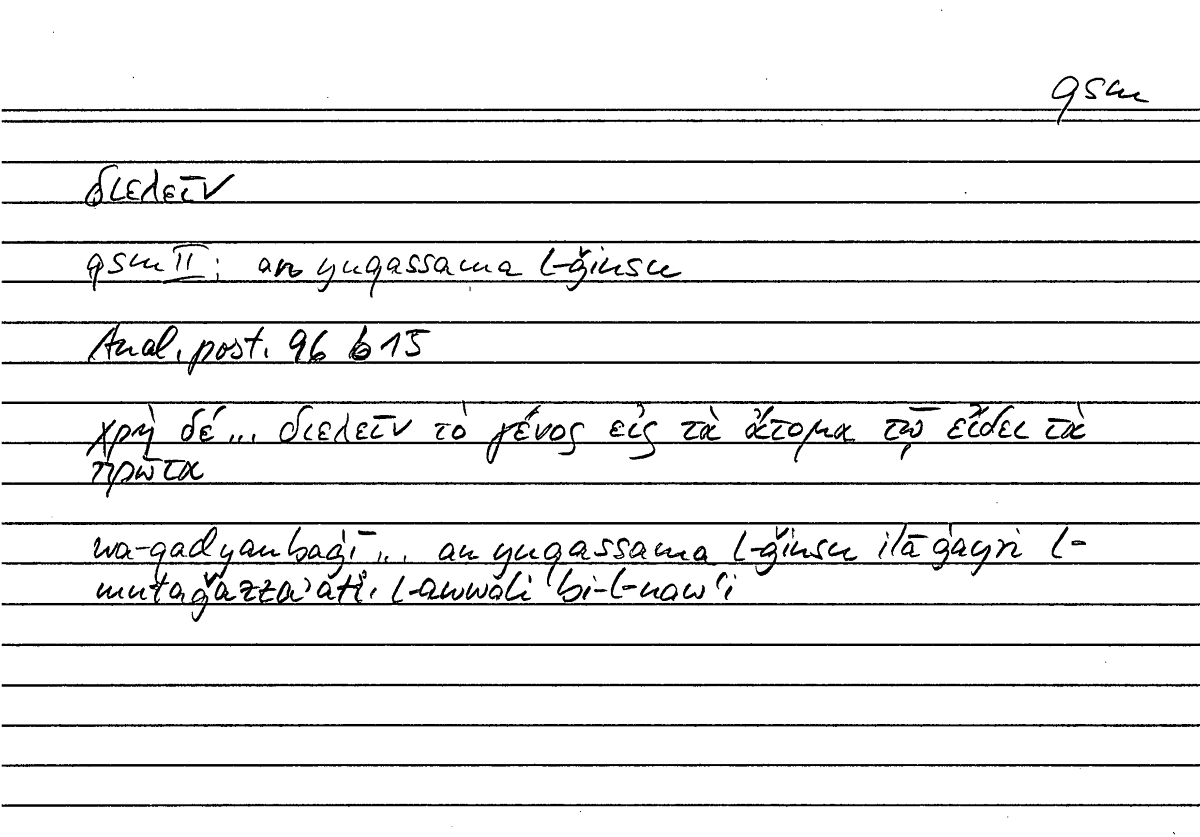 qsm
διελεῖν
qsm II: an yuqassama l-ǧinsu
Anal. post. 96 b 15
χρὴ δέ... διελεῖν τὸ γένος εἰς τὰ ἄτομα τῷ εἴδει τὰ
πρῶτα
wa-qad yanbaġī... an yuqassama l-ǧinsu ilā ġayri l-
mutaǧazzaʾāti l-awwali bi-l-nawʿi